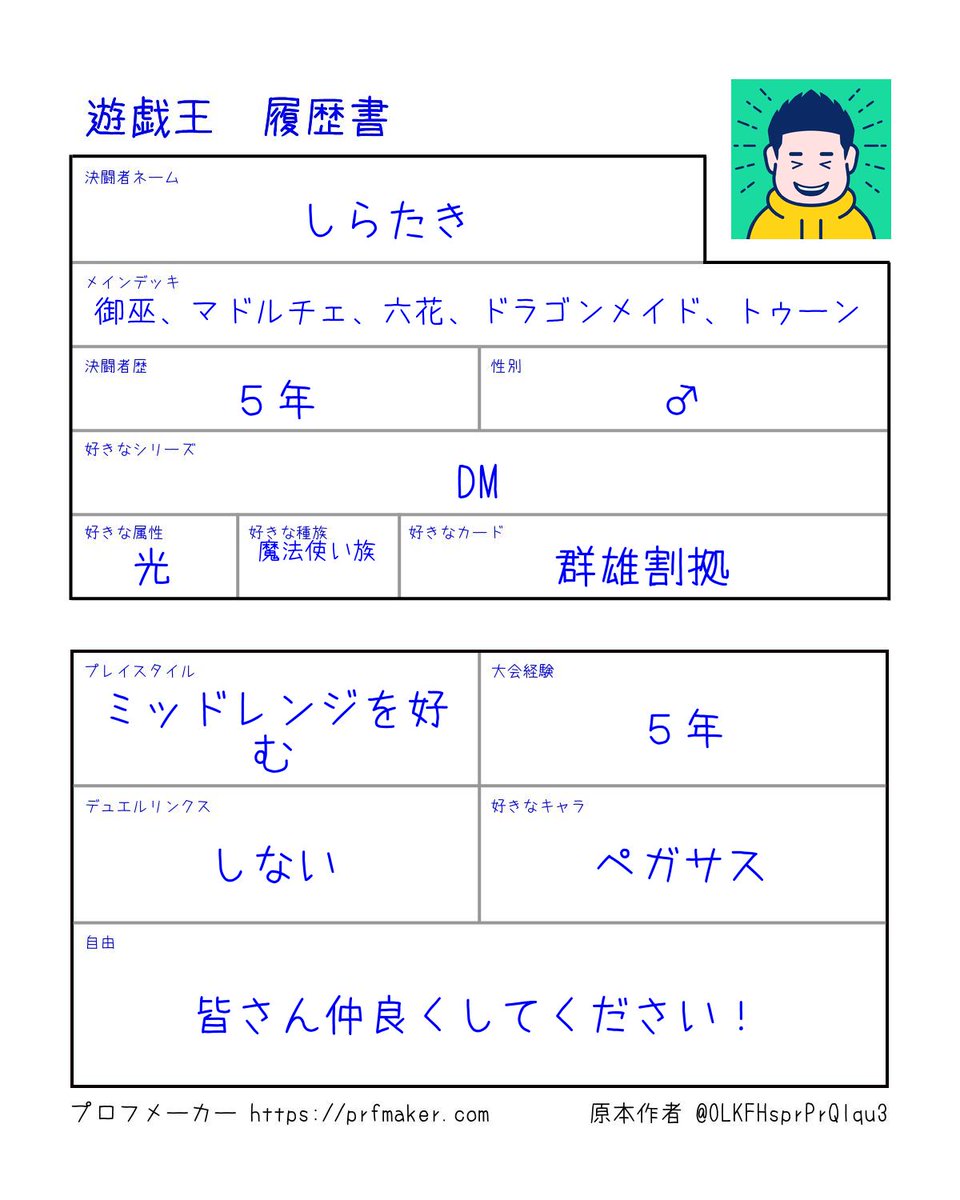 遊戯王　履歴書
決闘者ネーム
しらたき
メインデッキ
御巫、マドルチェ、六花、ドラゴンメイド、トゥーン
決闘者歴
５年
性別
♂
好きなシリーズ
DM
好きな属性
光
好きな種族
魔法使い族
好きなカード
群雄割拠
プレイスタイル
ミッドレンジを好
む
大会経験
５年
デュエルリンクス
しない
好きなキャラ
ペガサス
自由
皆さん仲良くしてください！
プロフメーカー https://prfmaker.com
原本作者 @OLKFHsprPrQlqu3